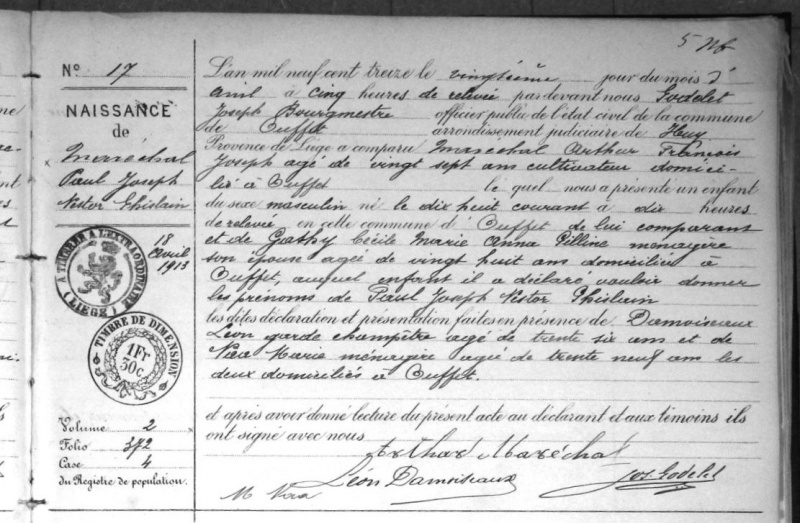 5 Nb
Nº 17
NAISSANCE
de
Maréchal
Paul Joseph
Nestor Ghislain
18
Avril
1913
A TIMBRER A L'EXTRAORDINAIRE
(LIEGE)
TIMBRE DE DIMENSION
1 Fr
30c.
Volume 2
Folio 372
Case 4
du Registre de population.
L'an mil neuf cent treize le vingtième jour du mois d'
avril à cinq heures de relevée par devant nous Godelet
Joseph Bourgmestre officier public de l'état civil de la commune
de Ouffet arrondissement judiciaire de Huy
Province de Liége a comparu Maréchal Arthur François
Joseph agé de vingt sept ans cultivateur domici-
lié à Ouffet le quel nous a présenté un enfant
du sexe masculin né le dix huit courant à dix heures
de relevée en cette commune d'Ouffet de lui comparant
et de Gathy Cécile Marie Anna ménagère
son épouse agée de vingt huit ans domiciliée à
Ouffet, auquel enfant il a déclaré vouloir donner
les prénoms de Paul Joseph Nestor Ghislain
les dites déclaration et présentation faites en présence de Damoiseaux
Léon garde champêtre agé de trente six ans et de
Marie ménagère agée de trente neuf ans les
deux domiciliés à Ouffet.
et après avoir donné lecture du présent acte au déclarant et aux témoins ils
ont signé avec nous
Arthur Maréchal
Léon Damoiseaux
Jos. Godelet
M